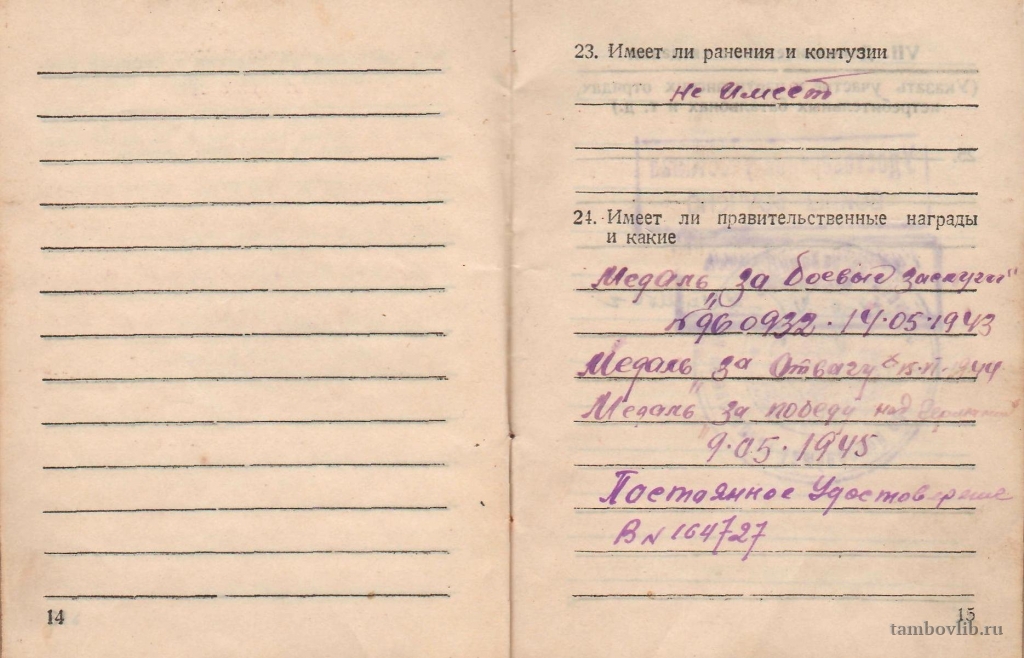 23. Имеет ли ранения и контузии
не имеет
24. Имеет ли правительственные награды
и какие
Медаль „за боевые заслуги"
№ 960932 · 14·05·1943
Медаль „за Отвагу"
Медаль „за победу над Германией
9·05·1945
Постоянное Удостоверение
В № 164727
14
15
tambovlib.ru